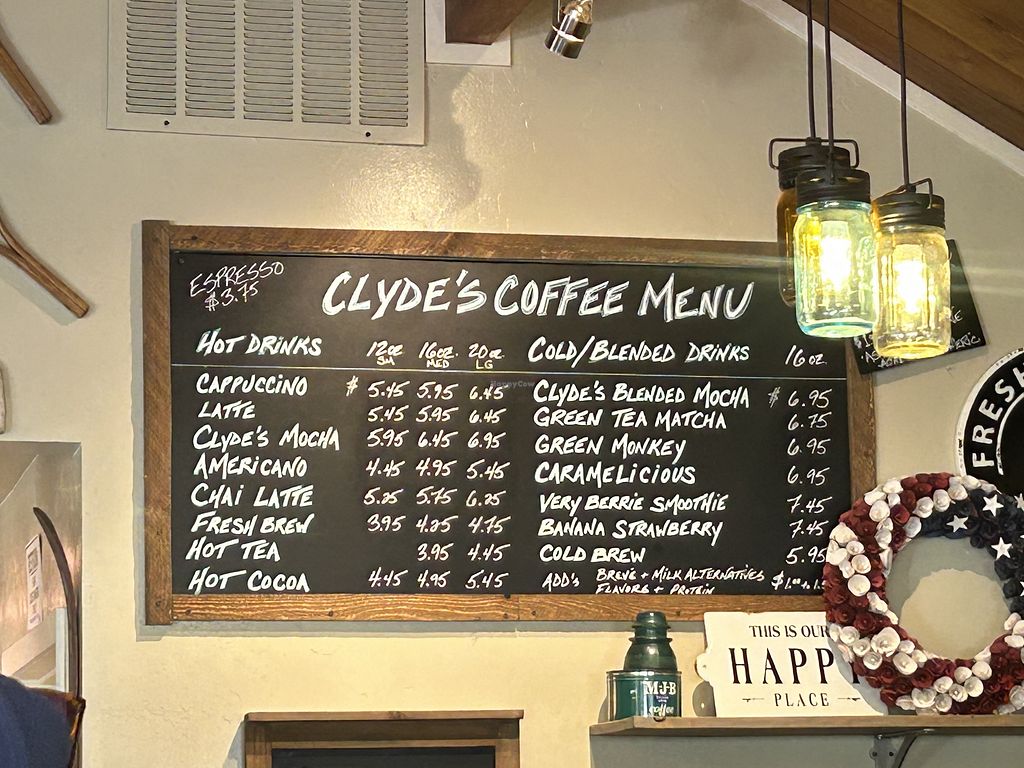 ESPRESSO
$3.75
CLYDE'S COFFEE MENU
HOT DRINKS 12oz SM 16oz. MED 20oz LG
CAPPUCCINO $ 5.45 5.95 6.45
LATTE 5.45 5.95 6.45
CLYDE'S MOCHA 5.95 6.45 6.95
AMERICANO 4.45 4.95 5.45
CHAI LATTE 5.25 5.75 6.25
FRESH BREW 3.95 4.25 4.75
HOT TEA 3.95 4.45
HOT COCOA 4.45 4.95 5.45
COLD/BLENDED DRINKS 16oz.
CLYDE'S BLENDED MOCHA $ 6.95
GREEN TEA MATCHA 6.75
GREEN MONKEY 6.95
CARAMELICIOUS 6.95
VERY BERRIE SMOOTHIE 7.45
BANANA STRAWBERRY 7.45
COLD BREW 5.95
ADD'S BREVE + MILK ALTERNATIVES
FLAVORS + PROTEIN
HappyCow
FRESH
M·J·B
coffee
THIS IS OUR
HAPPY
PLACE